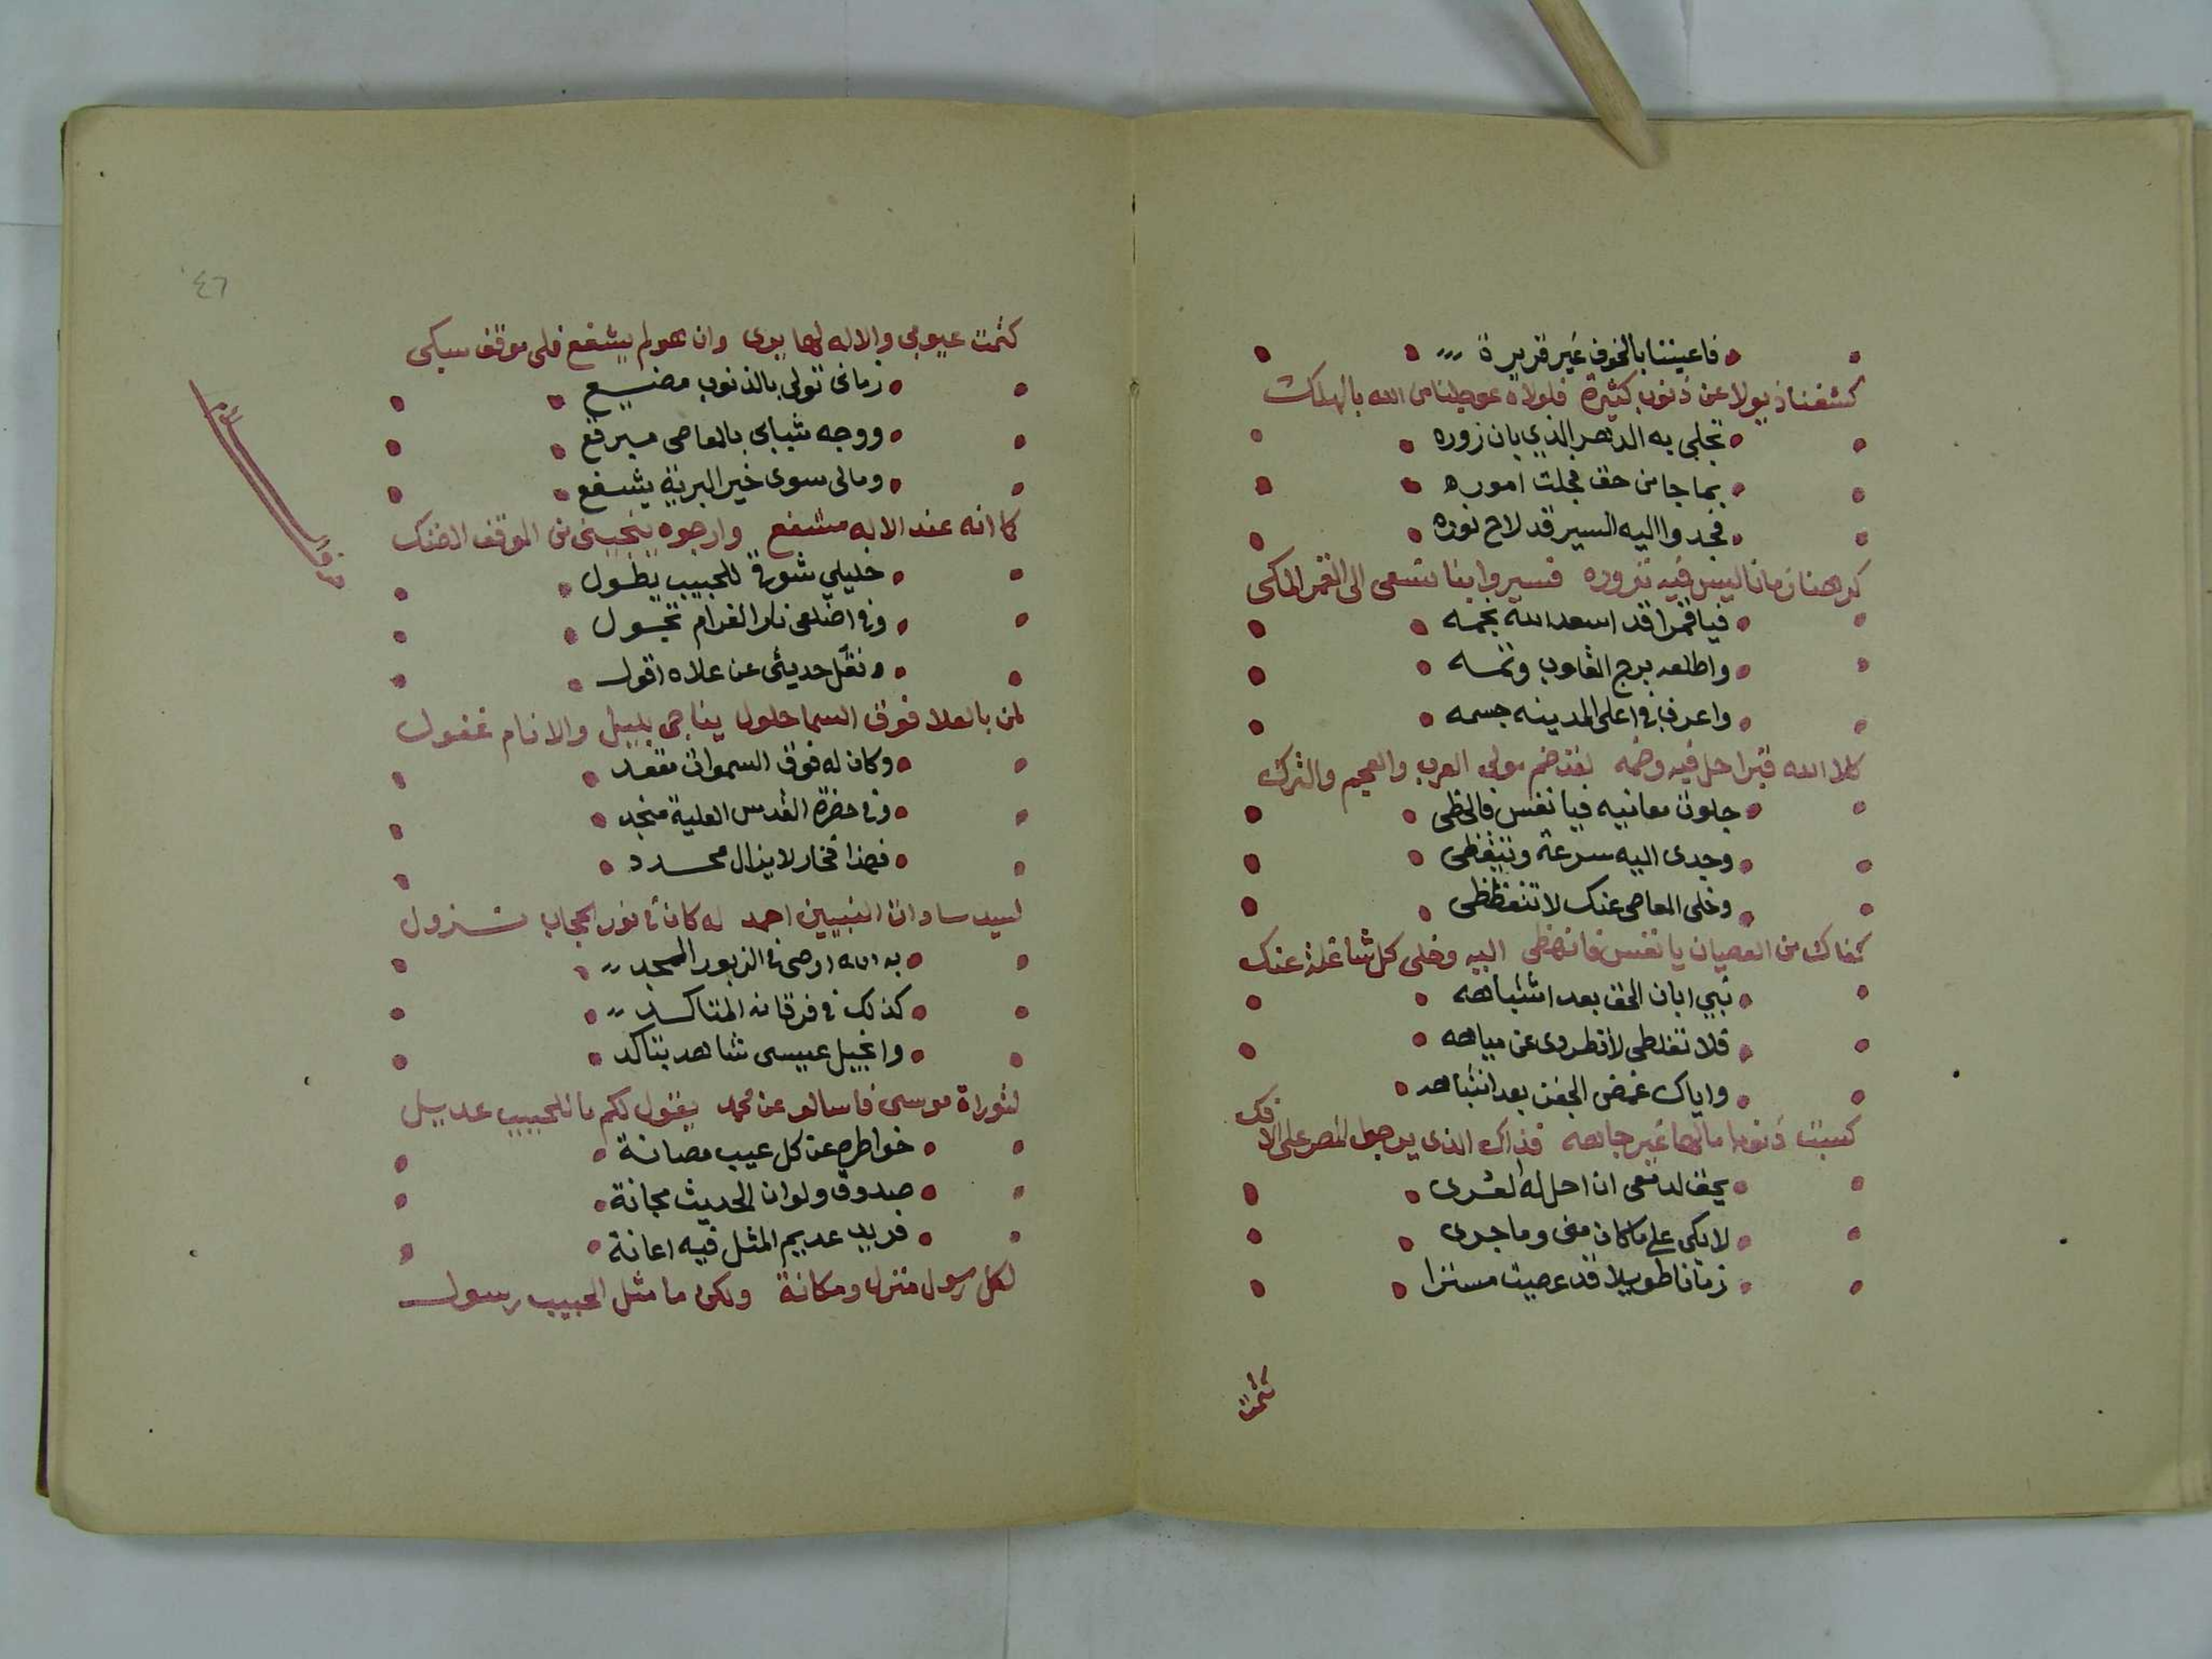 فاعيننا بالخوف غير قريرة
كشفنا ذيولا عن ذنوب كثيرة فلولاه عوجلنا من الله بالهلك
تجلى به الدهر الذي بان زوره
بما جا من حق فجلت اموره
فجدوا اليه السير قد لاح نوره
كرهنا زمانا ليس فيه نزوره فسيروا بنا نسعى الى القمر المكى
فيا قمرا قد اسعد الله نجمه
واطلعه برج القلوب وتمه
واعرف في اعلى المدينه جسمه
كلا الله قبرا حل فيه وضمه لقد ضم مولى العرب والعجم والترك
جلوت معانيه فيا نفس فالحظى
وجدى اليه سرعة وتيقظى
وخلى المعاصى عنك لا تتغظظى
كفاك من العصيان يا نفس فانهضى اليه وخلى كل شاغلة عنك
نبى ابان الحق بعد اشتباهه
فلا تغلطى لا تطردى عن مياهه
واياك غمض الجفن بعد انتباهه
كسبت ذنوبا مالها غير جاهه فذاك الذى يرجوا المصر على الافك
يحق لدمعى ان احل له العرى
لابكى على ما كان منى وما جرى
زمانا طويلا قد عصيت مسترا
كتمت
٤٦
كتمت عيوبى والاله لها يرى وان هو لم يشفع فلى موقف مبكى
زمانى تولى بالذنوب مضيع
ووجه شبابى بالمعاصى مبرقع
ومالى سوى خير البرية يشفع
كما انه عند الاله مشفع وارجوه ينجينى من الموقف الضنك
حرف اللام
خليلي شوقي للحبيب يطول
وفي اضلعى نار الغرام تجول
ونقل حديثى عن علاه اقول
لمن بالعلا فوق السما حلول يناجى بليل والانام غفول
وكان له فوق السموات مقعد
وفي حضرة القدس العلية منجد
فهذا فخار لا يزال محدد
لسيد سادات النبيين احمد له كان في نور الحجاب نزول
به الله اوصى في الزبور الممجد
كذلك في فرقانه المتاكد
وانجيل عيسى شاهد بتاكد
لتوراة موسى فاسالو عن محمد يقول لكم ما للحبيب عديل
خواطره عن كل عيب مصانة
صدوق ولوان الحديث مجانة
فريد عديم المثل فيه اعانة
لكل رسول منزل ومكانة ولكن ما مثل الحبيب رسول